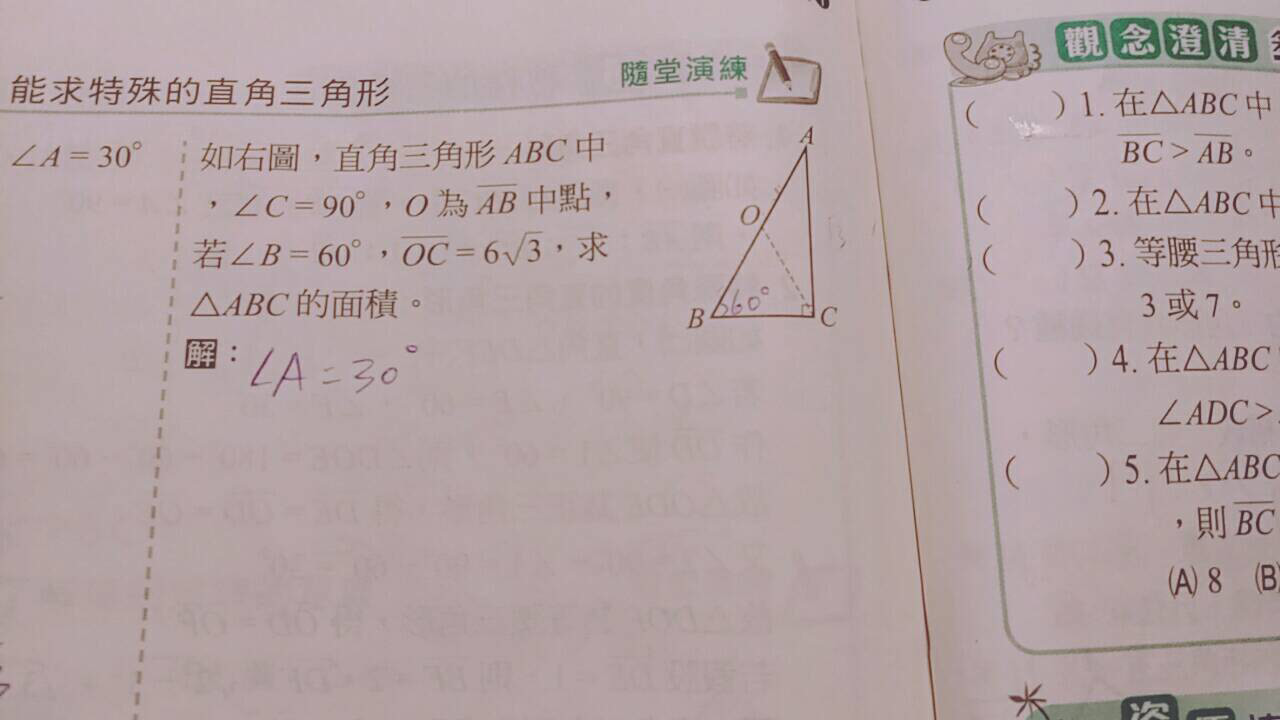 能求特殊的直角三角形
隨堂演練
∠A = 30°
如右圖，直角三角形 ABC 中
，∠C = 90°，O 為 AB 中點，
若∠B = 60°，OC = 6√3，求
△ABC 的面積。
解：∠A = 30°
A
O
B
60°
C
觀念澄清
(　) 1. 在△ABC 中
BC > AB。
(　) 2. 在△ABC 中
(　) 3. 等腰三角形
3 或 7。
(　) 4. 在△ABC
∠ADC >
(　) 5. 在△ABC
，則 BC
(A) 8 (B)